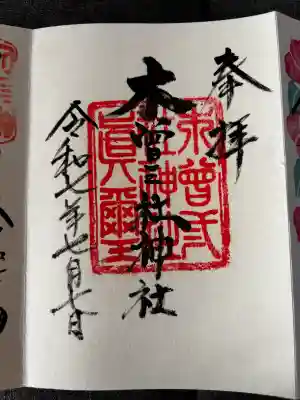 奉拝
木曽三社神社
令和七年七月七日
木曾弎
社神社
眞璽